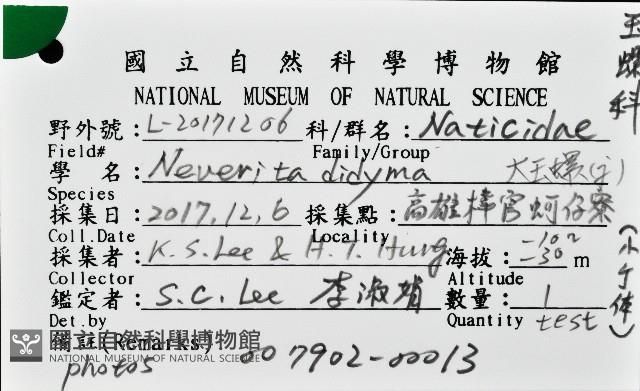 國立自然科學博物館
NATIONAL MUSEUM OF NATURAL SCIENCE
野外號：L-20171206 科/群名：Naticidae 玉螺科
Field# Family/Group
學名：Neverita didyma 大玉螺(子)
Species
採集日：2017,12,6 採集點：高雄梓官蚵仔寮
Coll.Date Locality
採集者：K.S.Lee & H.T. Hung 海拔：-10~-30 m
Collector Altitude
鑑定者：S.C.Lee 李淑娟 數量：1
Det.by Quantity test
備註(Remarks)
photos 007902-00013
(小个体)
國立自然科學博物館
NATIONAL MUSEUM OF NATURAL SCIENCE